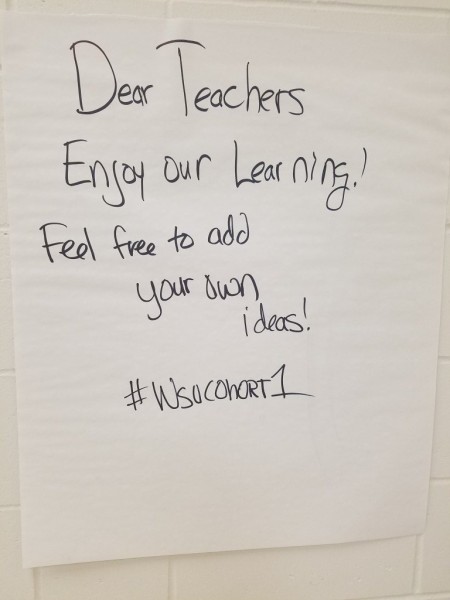 Dear Teachers
Enjoy our Learning!
Feel free to add
your own
ideas!
#WSUCOHORT1